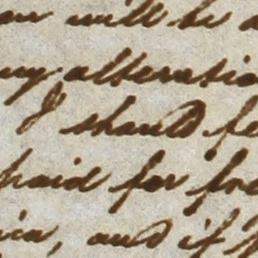 will be a
any alteratio
I should fe
paid for fre
ica, and if